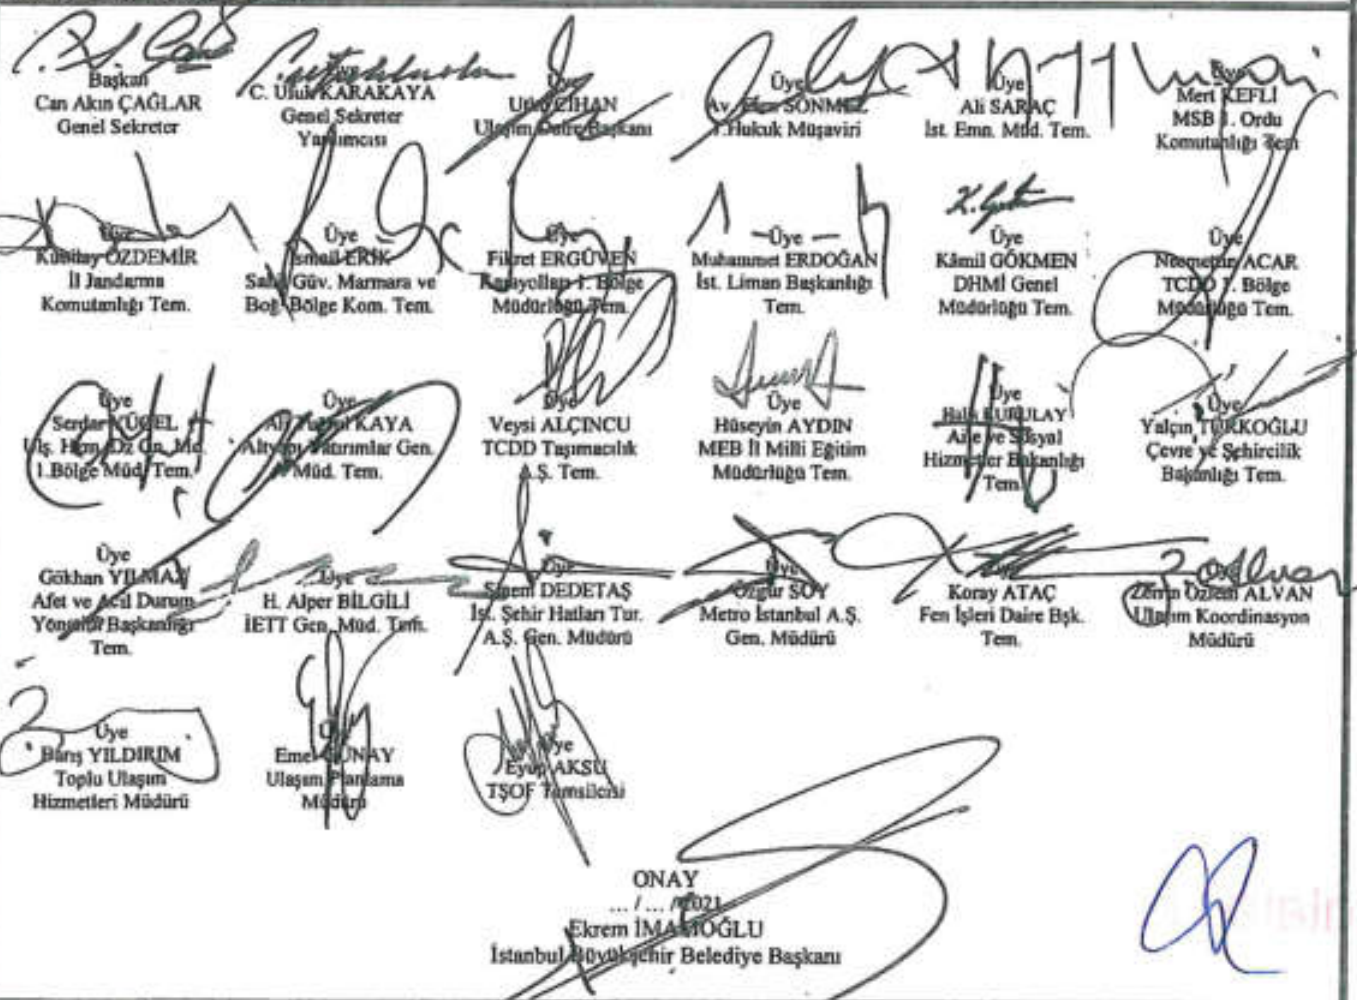 Başkan
Can Akın ÇAĞLAR
Genel Sekreter
C. Ufuk KARAKAYA
Genel Sekreter
Yardımcısı
Üye
Utku CİHAN
Ulaşım Daire Başkanı
Üye
Av. SÖNMEZ
1.Hukuk Müşaviri
Üye
Ali SARAÇ
İst. Emn. Müd. Tem.
Üye
Mert KEFLİ
MSB 1. Ordu
Komutanlığı Tem
Üye
Kubilay ÖZDEMİR
İl Jandarma
Komutanlığı Tem.
Üye
İsmail ERİK
Sahil Güv. Marmara ve
Boğ. Bölge Kom. Tem.
Üye
Fikret ERGÜVEN
Karayolları 1. Bölge
Müdürlüğü Tem.
Üye
Muhammet ERDOĞAN
İst. Liman Başkanlığı
Tem.
K.
Üye
Kâmil GÖKMEN
DHMİ Genel
Müdürlüğü Tem.
Üye
Necmettin ACAR
TCDD 1. Bölge
Müdürlüğü Tem.
Üye
Serdar YÜCEL
Ulş. Hizm.
1.Bölge Müd. Tem.
Üye
KAYA
Altyapı Yatırımlar Gen.
Müd. Tem.
Üye
Veysi ALÇINCU
TCDD Taşımacılık
A.Ş. Tem.
Üye
Hüseyin AYDIN
MEB İl Milli Eğitim
Müdürlüğü Tem.
Üye
Aile ve Sosyal
Hizmetler Bakanlığı
Tem.
Üye
Yalçın TÜRKOĞLU
Çevre ve Şehircilik
Bakanlığı Tem.
Üye
Gökhan YILMAZ
Afet ve Acil Durum
Yönetimi Başkanlığı
Tem.
Üye
H. Alper BİLGİLİ
İETT Gen. Müd. Tem.
Üye
Sinem DEDETAŞ
İst. Şehir Hatları Tur.
A.Ş. Gen. Müdürü
Üye
Özgür SOY
Metro İstanbul A.Ş.
Gen. Müdürü
Koray ATAÇ
Fen İşleri Daire Bşk.
Tem.
Özlem ALVAN
Ulaşım Koordinasyon
Müdürü
Üye
Barış YILDIRIM
Toplu Ulaşım
Hizmetleri Müdürü
Emel GÜNAY
Ulaşım Planlama
Müdürü
Üye
Eyüp AKSU
TŞOF Temsilcisi
ONAY
... / ... /2021
Ekrem İMAMOĞLU
İstanbul Büyükşehir Belediye Başkanı